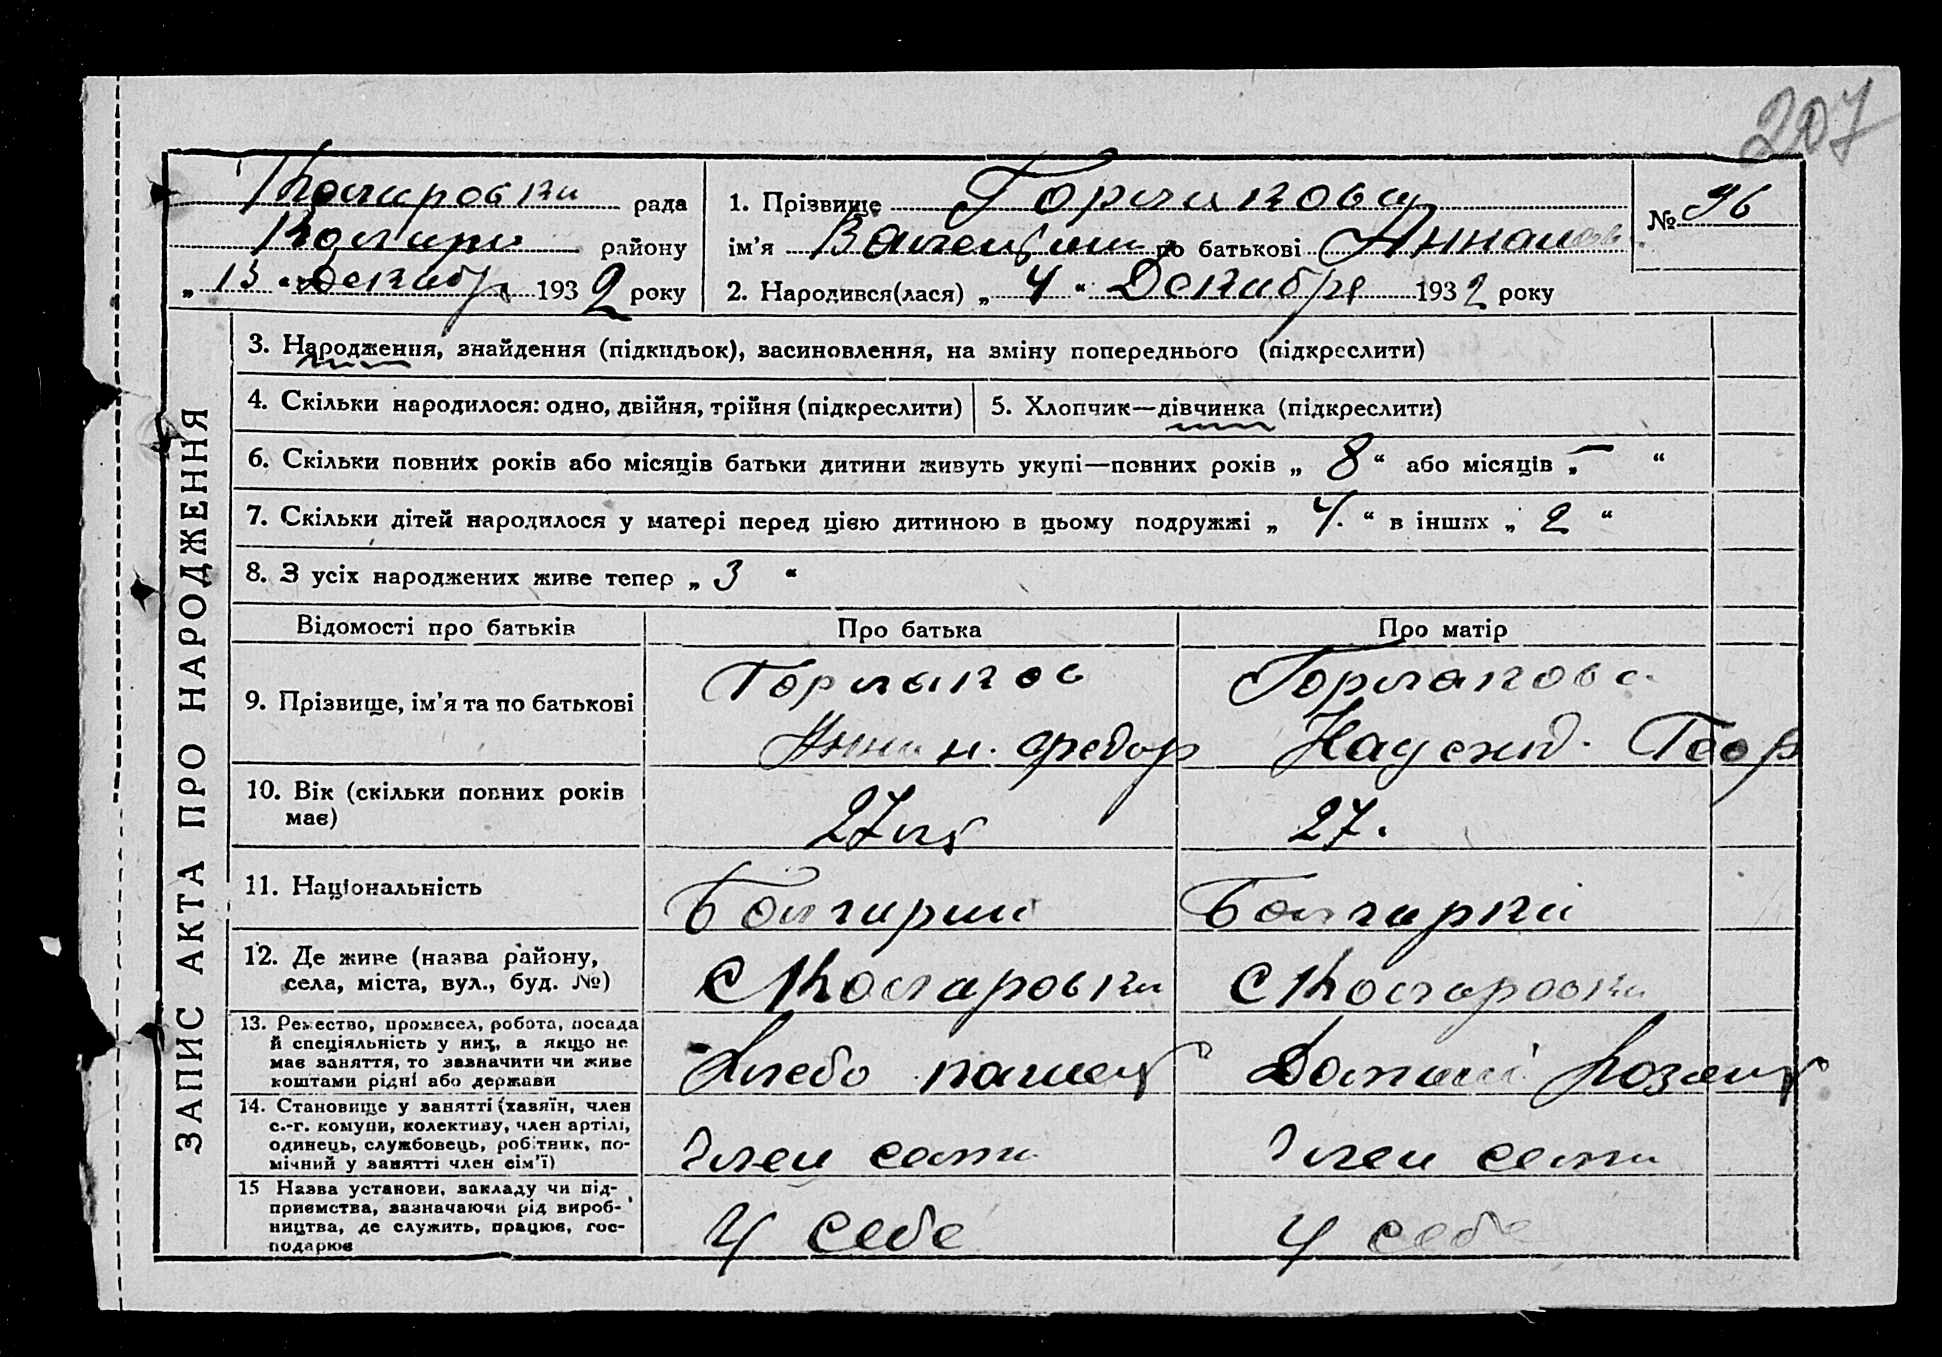 207
Коларовки рада
Колар. району
„ 13 “ Декабр 1932 року
1. Прізвище Горлакова
ім’я Валентина по батькові
2. Народився(лася) „ 4 “ Декабря 1932 року
№ 96
ЗАПИС АКТА ПРО НАРОДЖЕННЯ
3. Народження, знайдення (підкидьок), засиновлення, на зміну попереднього (підкреслити)
4. Скільки народилося: одно, двійня, трійня (підкреслити)
5. Хлопчик—дівчинка (підкреслити)
6. Скільки повних років або місяців батьки дитини живуть укупі—повних років „ 8 “ або місяців „ – “
7. Скільки дітей народилося у матері перед цією дитиною в цьому подружжі „ 4. “ в інших „ 2 “
8. З усіх народжених живе тепер „ 3 “
Відомості про батьків
Про батька
Про матір
9. Прізвище, ім’я та по батькові
Горлаков
Федор
Горлакова
Геор
10. Вік (скільки повних років
має)
27
27.
11. Національність
Болгарин
Болгарка
12. Де живе (назва району,
села, міста, вул., буд. №)
с Коларовка
с Коларовка
13. Ремество, промисел, робота, посада
й спеціяльність у них, а якщо не
має заняття, то зазначити чи живе
коштами рідні або держави
Хлебо пашец
Домаш. хозяй
14. Становище у занятті (хазяїн, член
с.-г. комуни, колективу, член артілі,
одинець, службовець, робітник, по-
мічний у занятті член сім’ї)
член семи
член семи
15 Назва установи, закладу чи під-
приємства, зазначаючи рід вироб-
ництва, де служить, працює, гос-
подарює
У себе
У себе